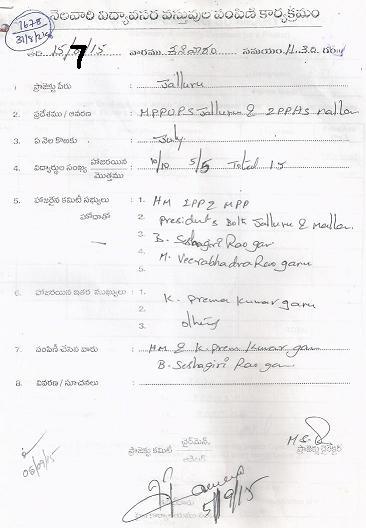 7678
31/8/15
నెలవారి విద్యావసర వస్తువుల పంపిణీ కార్యక్రమం
తేది 15/7/15 వారము సమయం 11.30 గం
1. ప్రాజెక్టు పేరు : Jalluru
2. ప్రదేశము / ఆవరణ : MPPUPS Jalluru & 2PPAs mallam
3. ఏ నెల కొఱకు : July
4. విద్యార్థుల సంఖ్య హాజరయిన మొత్తము 10/10 5/5 Total 15
5. హాజరైన కమిటీ సభ్యులు : 1. HM 2PP2 MPP
హోదాతో 2. Presidents Both Jalluru & mallam.
3. B. Seshagiri Rao garu
4. M. Veerabhadra Rao garu
5.
6. హాజరయిన ఇతర ముఖ్యులు : 1.
2. K. Prema Kumar garu
3. others
7. పంపిణీ చేసిన వారు : HM & K. Prem Kumar garu
B. Seshagiri Rao garu
8. వివరణ / సూచనలు :
ప్రాజెక్టు కమిటీ ఛైర్మెన్
ప్రాజెక్టు డైరెక్టర్
5/9/15